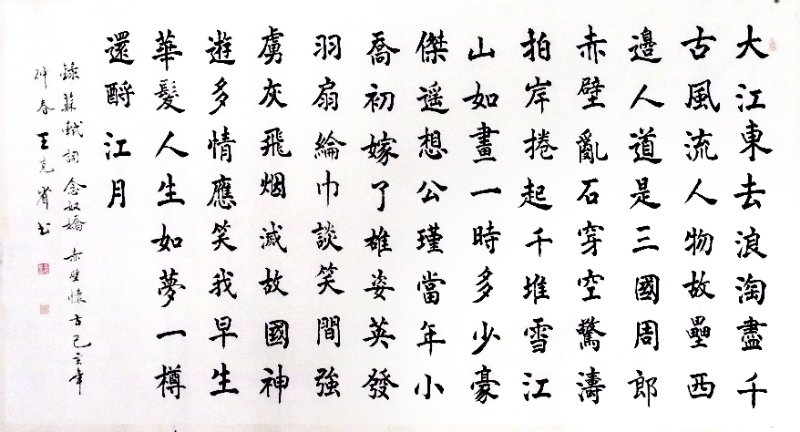 大江東去浪淘盡千
古風流人物故壘西
邊人道是三國周郎
赤壁亂石穿空驚濤
拍岸捲起千堆雪江
山如畫一時多少豪
傑遥想公瑾當年小
喬初嫁了雄姿英發
羽扇綸巾談笑間強
虜灰飛烟滅故國神
遊多情應笑我早生
華髮人生如夢一樽
還酹江月
錄蘇軾詞念奴嬌赤壁懷古己亥年
仲春王克書